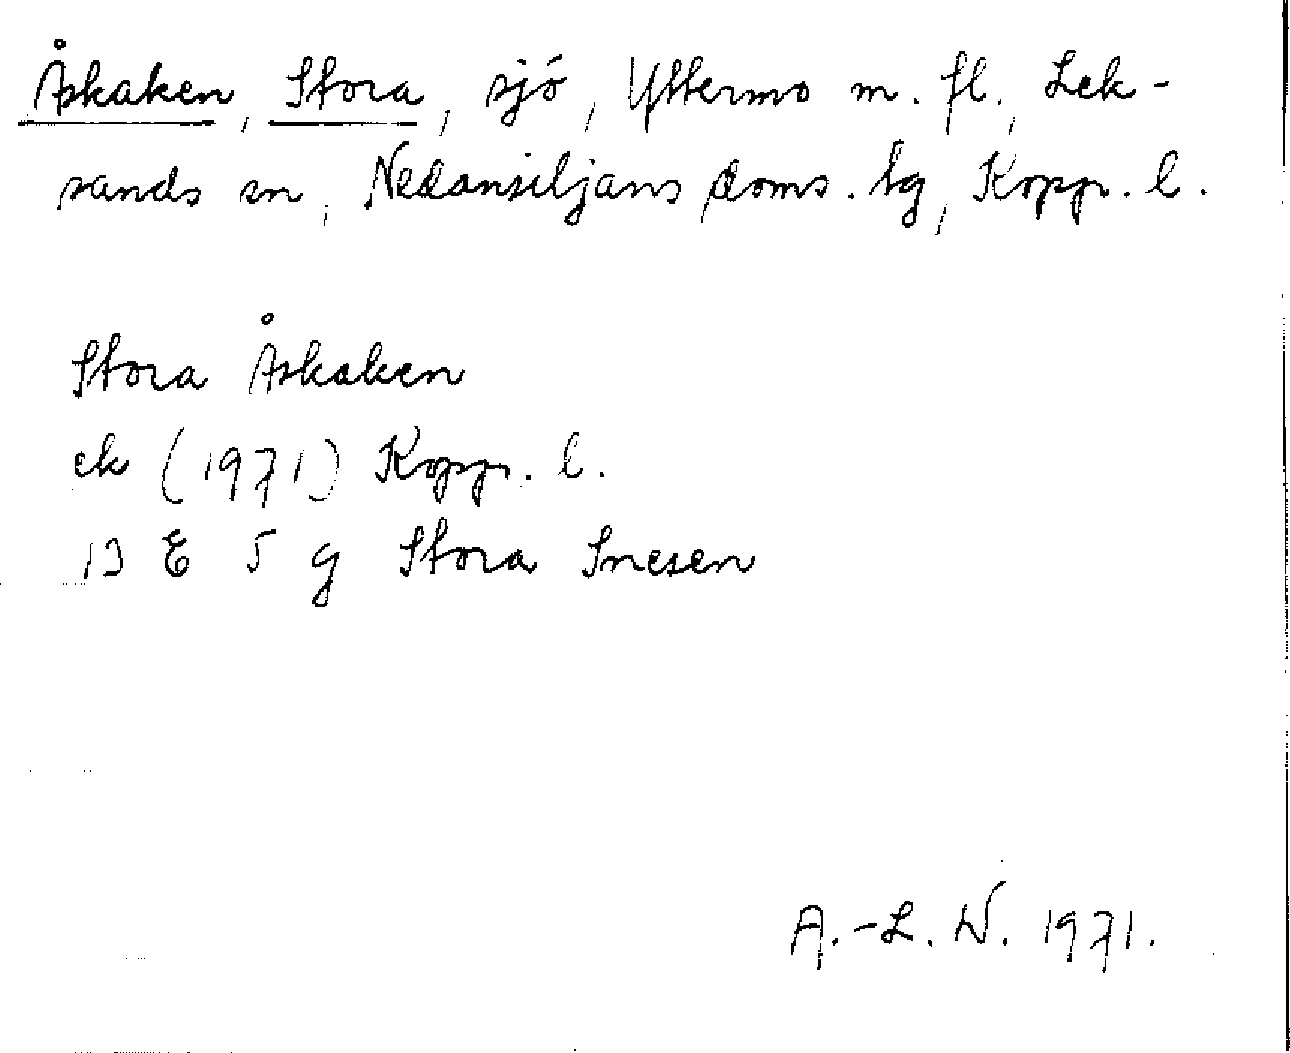 Åskaken, Stora, sjö, Yttermo m. fl., Lek-
sands sn, Nedansiljans doms. hg, Kopp. l.
Stora Åskaken
ek (1971) Kopp. l.
13 E 5 g Stora Snesen
A.-L. W. 1971.